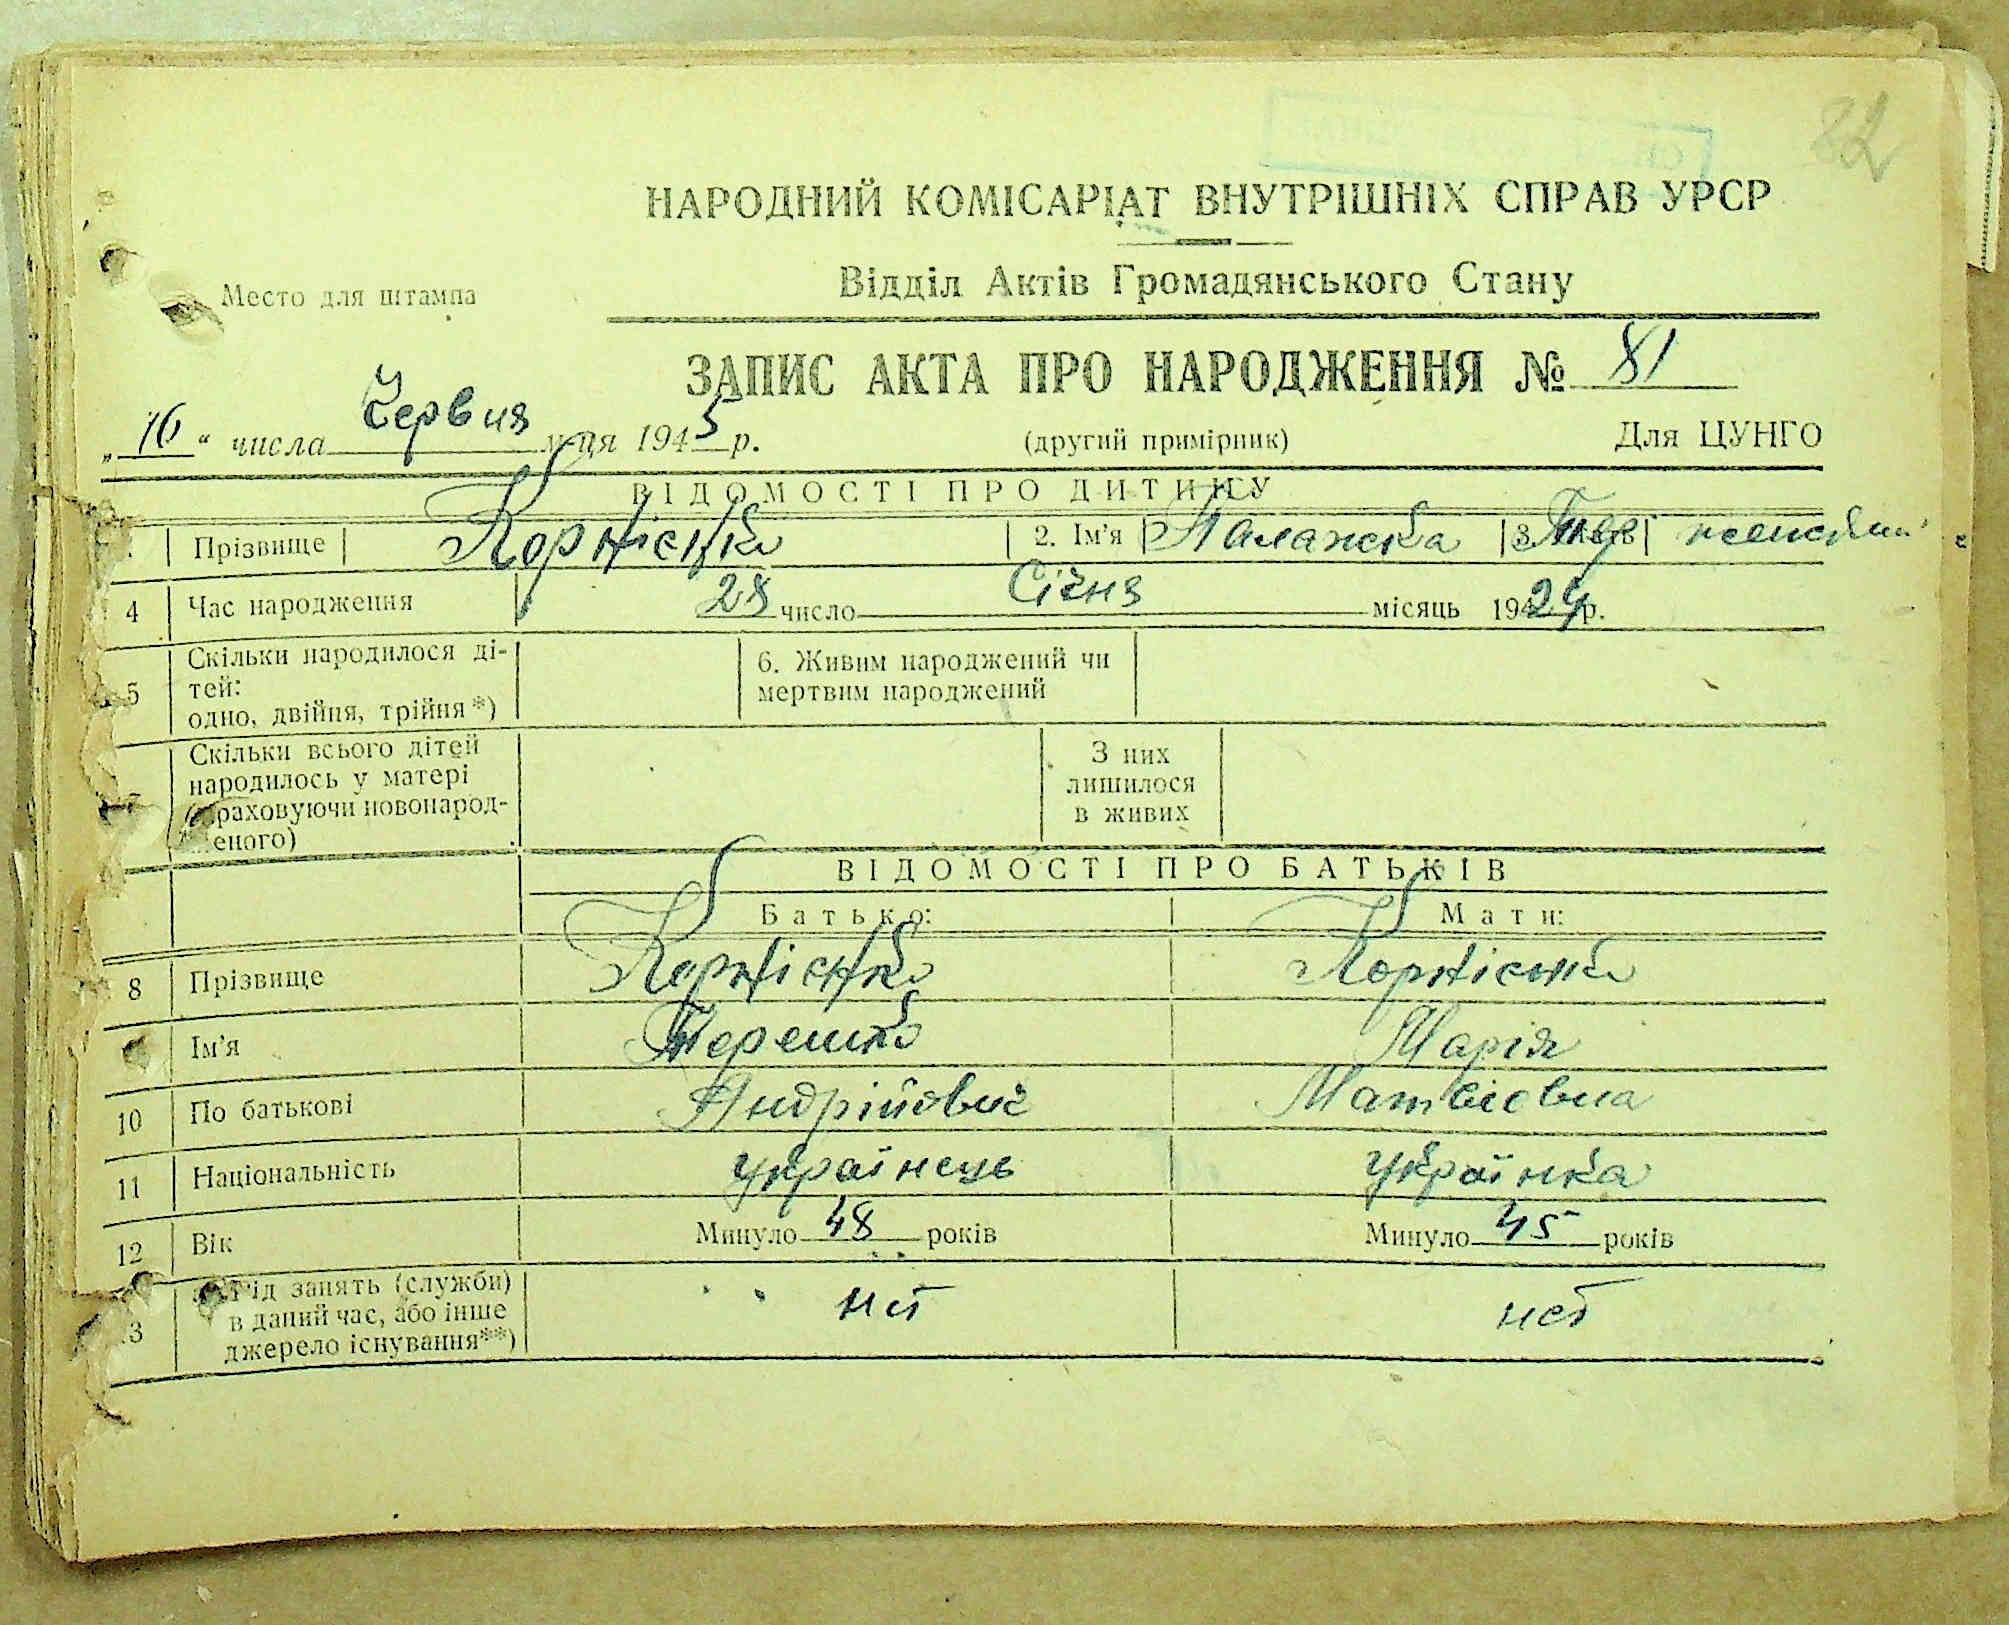 82
НАРОДНИЙ КОМІСАРІАТ ВНУТРІШНІХ СПРАВ УРСР
Відділ Актів Громадянського Стану
Место для штампа
ЗАПИС АКТА ПРО НАРОДЖЕННЯ № 81
„16“ числа Червня м-ця 1945 р. (другий примірник) Для ЦУНГО
ВІДОМОСТІ ПРО ДИТИНУ
Прізвище Корнієнко 2. Ім'я Палажка 3.
4 Час народження 28 число Січня місяць 1924 р.
5 Скільки народилося ді-
тей:
одно, двійня, трійня*)
6. Живим народжений чи
мертвим народжений
Скільки всього дітей
народилось у матері
(враховуючи новонарод-
еного)
З них
лишилося
в живих
ВІДОМОСТІ ПРО БАТЬКІВ
Батько: Мати:
8 Прізвище Корнієнко Корнієнко
Ім'я Терешко Марія
10 По батькові Андрійович Матвієвна
11 Національність українець українка
12 Вік Минуло 48 років Минуло 45 років
13 Рід занять (служби)
в даний час, або інше
джерело існування**)
нет нет